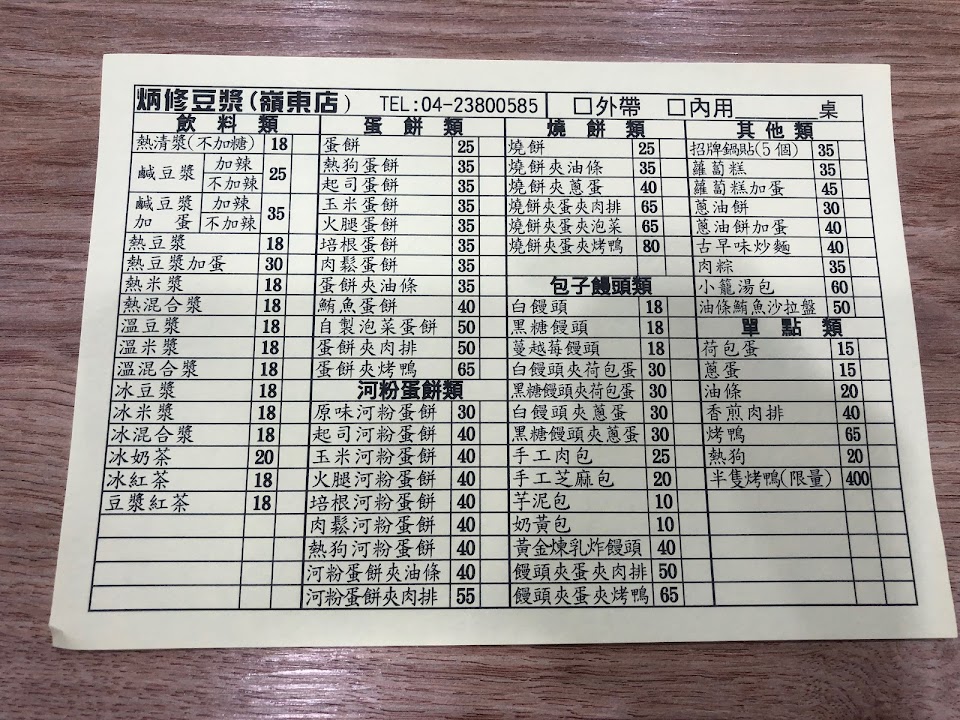 炳修豆漿(嶺東店) TEL:04-23800585 □外帶 □內用______桌
飲料類
熱清漿(不加糖) 18
鹹豆漿 加辣 不加辣 25
鹹豆漿加蛋 加辣 不加辣 35
熱豆漿 18
熱豆漿加蛋 30
熱米漿 18
熱混合漿 18
溫豆漿 18
溫米漿 18
溫混合漿 18
冰豆漿 18
冰米漿 18
冰混合漿 18
冰奶茶 20
冰紅茶 18
豆漿紅茶 18
蛋餅類
蛋餅 25
熱狗蛋餅 35
起司蛋餅 35
玉米蛋餅 35
火腿蛋餅 35
培根蛋餅 35
肉鬆蛋餅 35
蛋餅夾油條 35
鮪魚蛋餅 40
自製泡菜蛋餅 50
蛋餅夾肉排 50
蛋餅夾烤鴨 65
河粉蛋餅類
原味河粉蛋餅 30
起司河粉蛋餅 40
玉米河粉蛋餅 40
火腿河粉蛋餅 40
培根河粉蛋餅 40
肉鬆河粉蛋餅 40
熱狗河粉蛋餅 40
河粉蛋餅夾油條 40
河粉蛋餅夾肉排 55
燒餅類
燒餅 25
燒餅夾油條 35
燒餅夾蔥蛋 40
燒餅夾蛋夾肉排 65
燒餅夾蛋夾泡菜 65
燒餅夾蛋夾烤鴨 80
包子饅頭類
白饅頭 18
黑糖饅頭 18
蔓越莓饅頭 18
白饅頭夾荷包蛋 30
黑糖饅頭夾荷包蛋 30
白饅頭夾蔥蛋 30
黑糖饅頭夾蔥蛋 30
手工肉包 25
手工芝麻包 20
芋泥包 10
奶黃包 10
黃金煉乳炸饅頭 40
饅頭夾蛋夾肉排 50
饅頭夾蛋夾烤鴨 65
其他類
招牌鍋貼(5個) 35
蘿蔔糕 35
蘿蔔糕加蛋 45
蔥油餅 30
蔥油餅加蛋 40
古早味炒麵 40
肉粽 35
小籠湯包 60
油條鮪魚沙拉盤 50
單點類
荷包蛋 15
蔥蛋 15
油條 20
香煎肉排 40
烤鴨 65
熱狗 20
半隻烤鴨(限量) 400